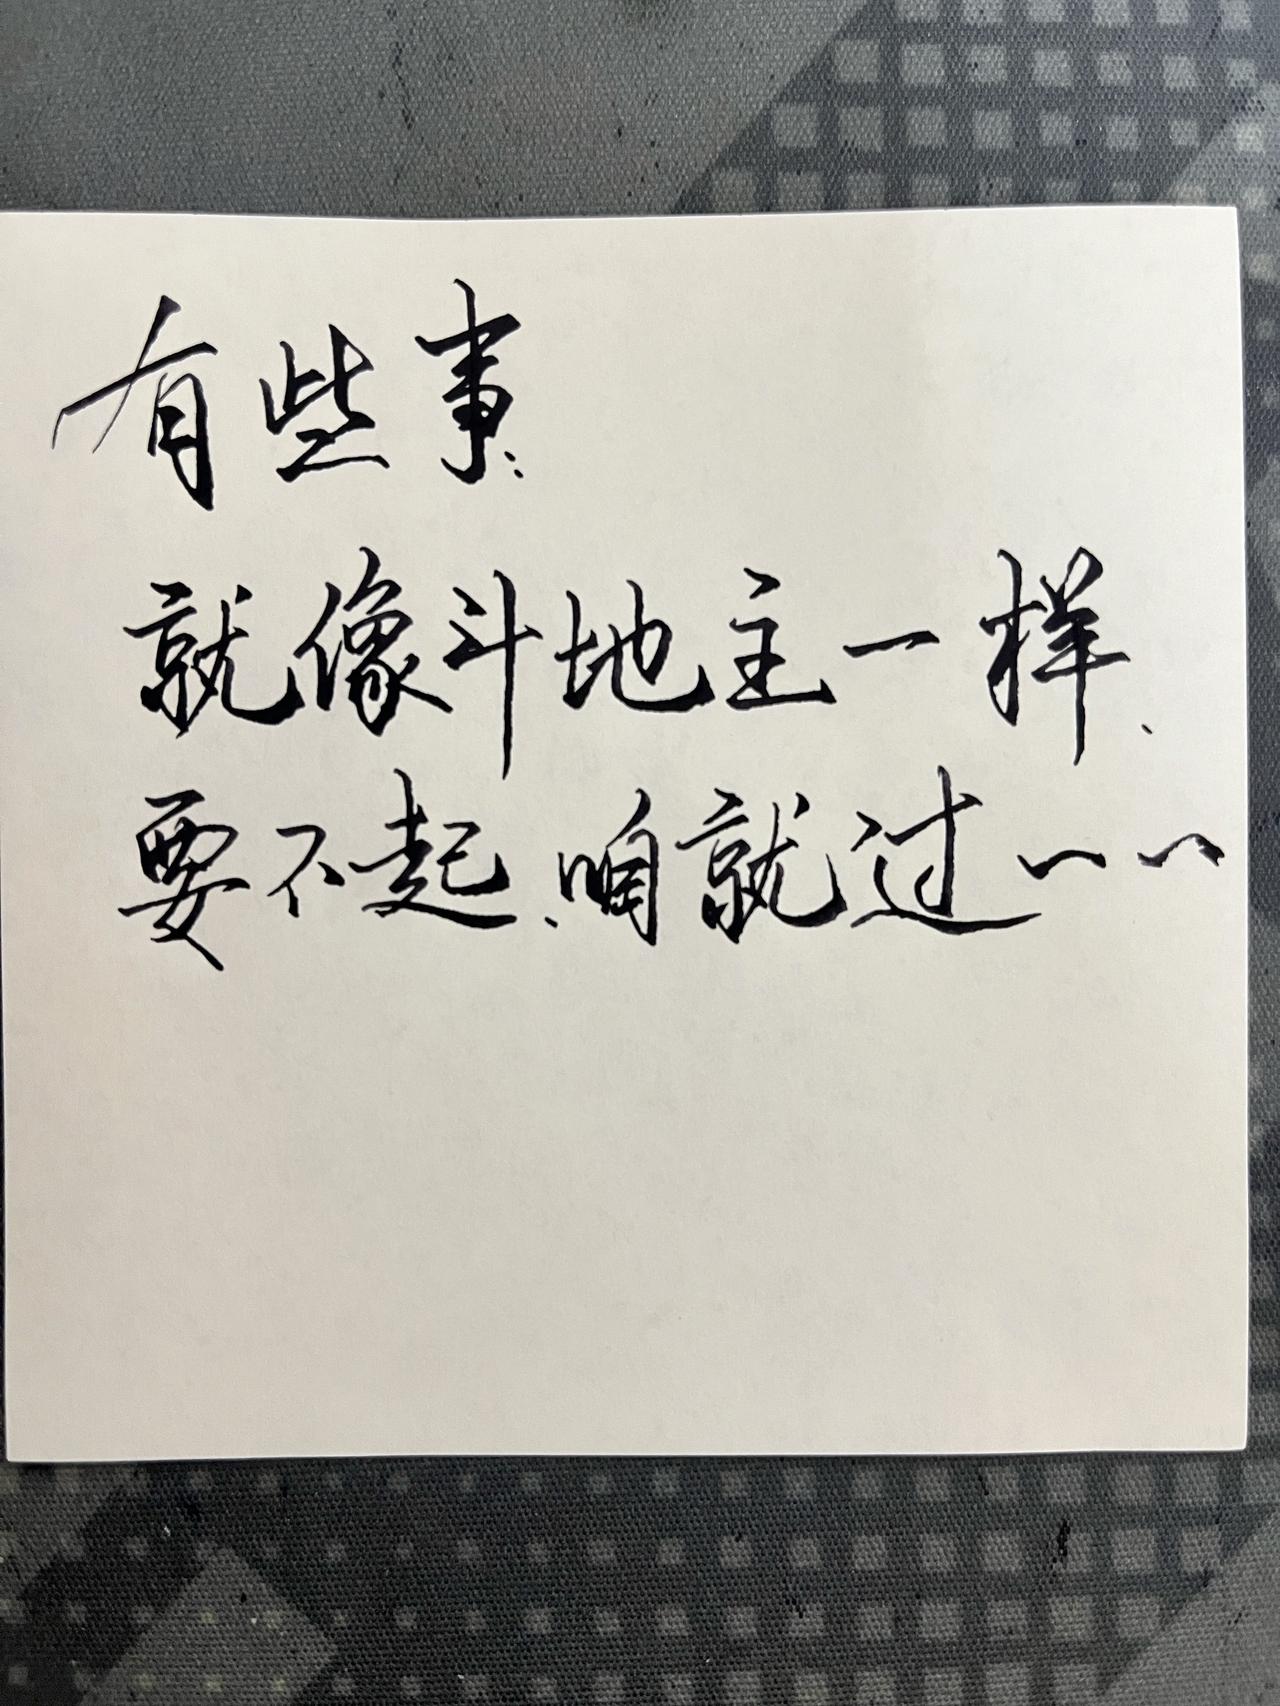 有些事:
就像斗地主一样、
要不起、咱就过~~